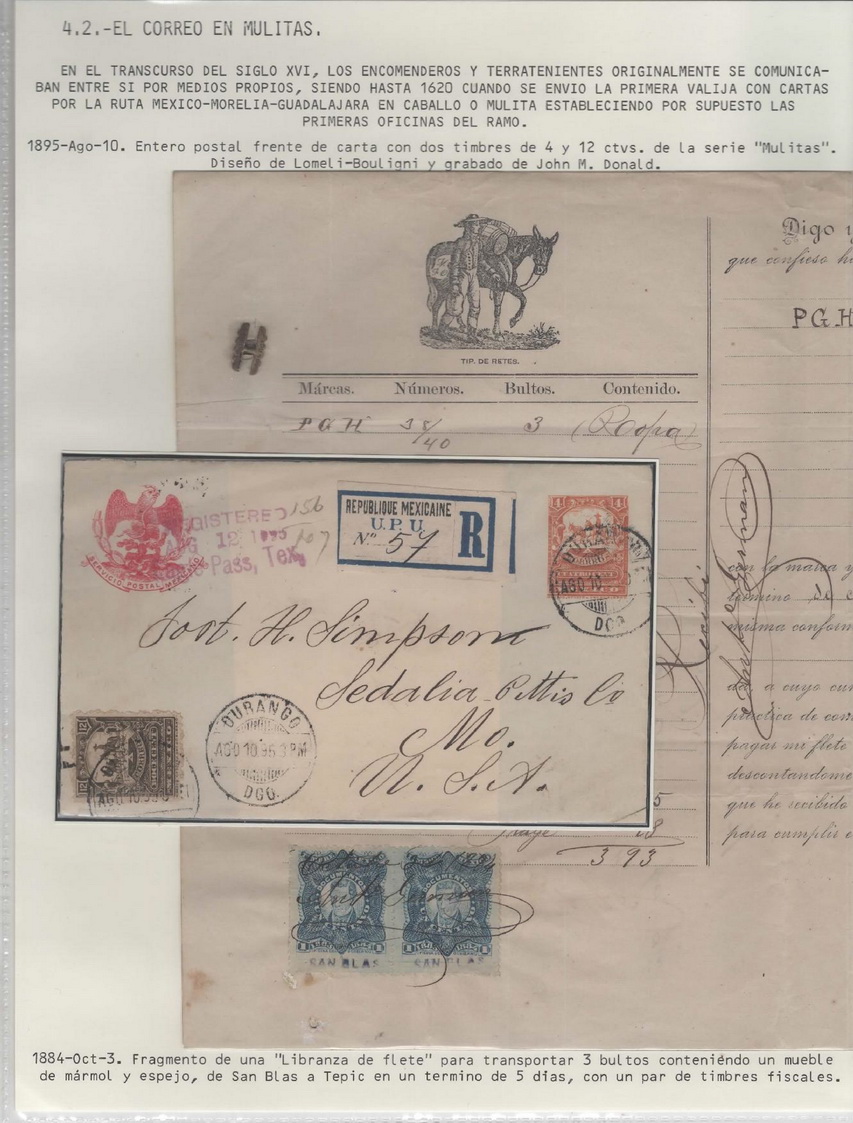 4.2.-EL CORREO EN MULITAS.
EN EL TRANSCURSO DEL SIGLO XVI, LOS ENCOMENDEROS Y TERRATENIENTES ORIGINALMENTE SE COMUNICA-
BAN ENTRE SI POR MEDIOS PROPIOS, SIENDO HASTA 1620 CUANDO SE ENVIO LA PRIMERA VALIJA CON CARTAS
POR LA RUTA MEXICO-MORELIA-GUADALAJARA EN CABALLO O MULITA ESTABLECIENDO POR SUPUESTO LAS
PRIMERAS OFICINAS DEL RAMO.
1895-Ago-10. Entero postal frente de carta con dos timbres de 4 y 12 ctvs. de la serie "Mulitas".
Diseño de Lomelí-Bouligni y grabado de John M. Donald.
Digo y
que confieso h
PGH
TIP. DE RETES.
Márcas. Números. Bultos. Contenido.
PGH 38/40 3 (Ropa)
REGISTERED
156
AUG 12 1895
107
Pass, Tex.
SERVICIO POSTAL MEXICANO
REPUBLIQUE MEXICAINE
U.P.U.
Nº 57
R
4
DURANGO
AGO 10
DGO.
Post. H. Simpson
Sedalia Pettis Co
Mo.
U.S.A.
12
DURANGO
AGO 10 95 3 PM
DGO.
AGO 10 95
Recibí
con la marca y
término de
misma conform
da, a cuyo cu
práctica de co
pagar mi flete
descontandome
que he recibido
para cumplir
3 93
DOCUMENTOS
DOCUMENTOS
SAN BLAS SAN BLAS
1884-Oct-3. Fragmento de una "Libranza de flete" para transportar 3 bultos conteniéndo un mueble
de mármol y espejo, de San Blas a Tepic en un termino de 5 días, con un par de timbres fiscales.